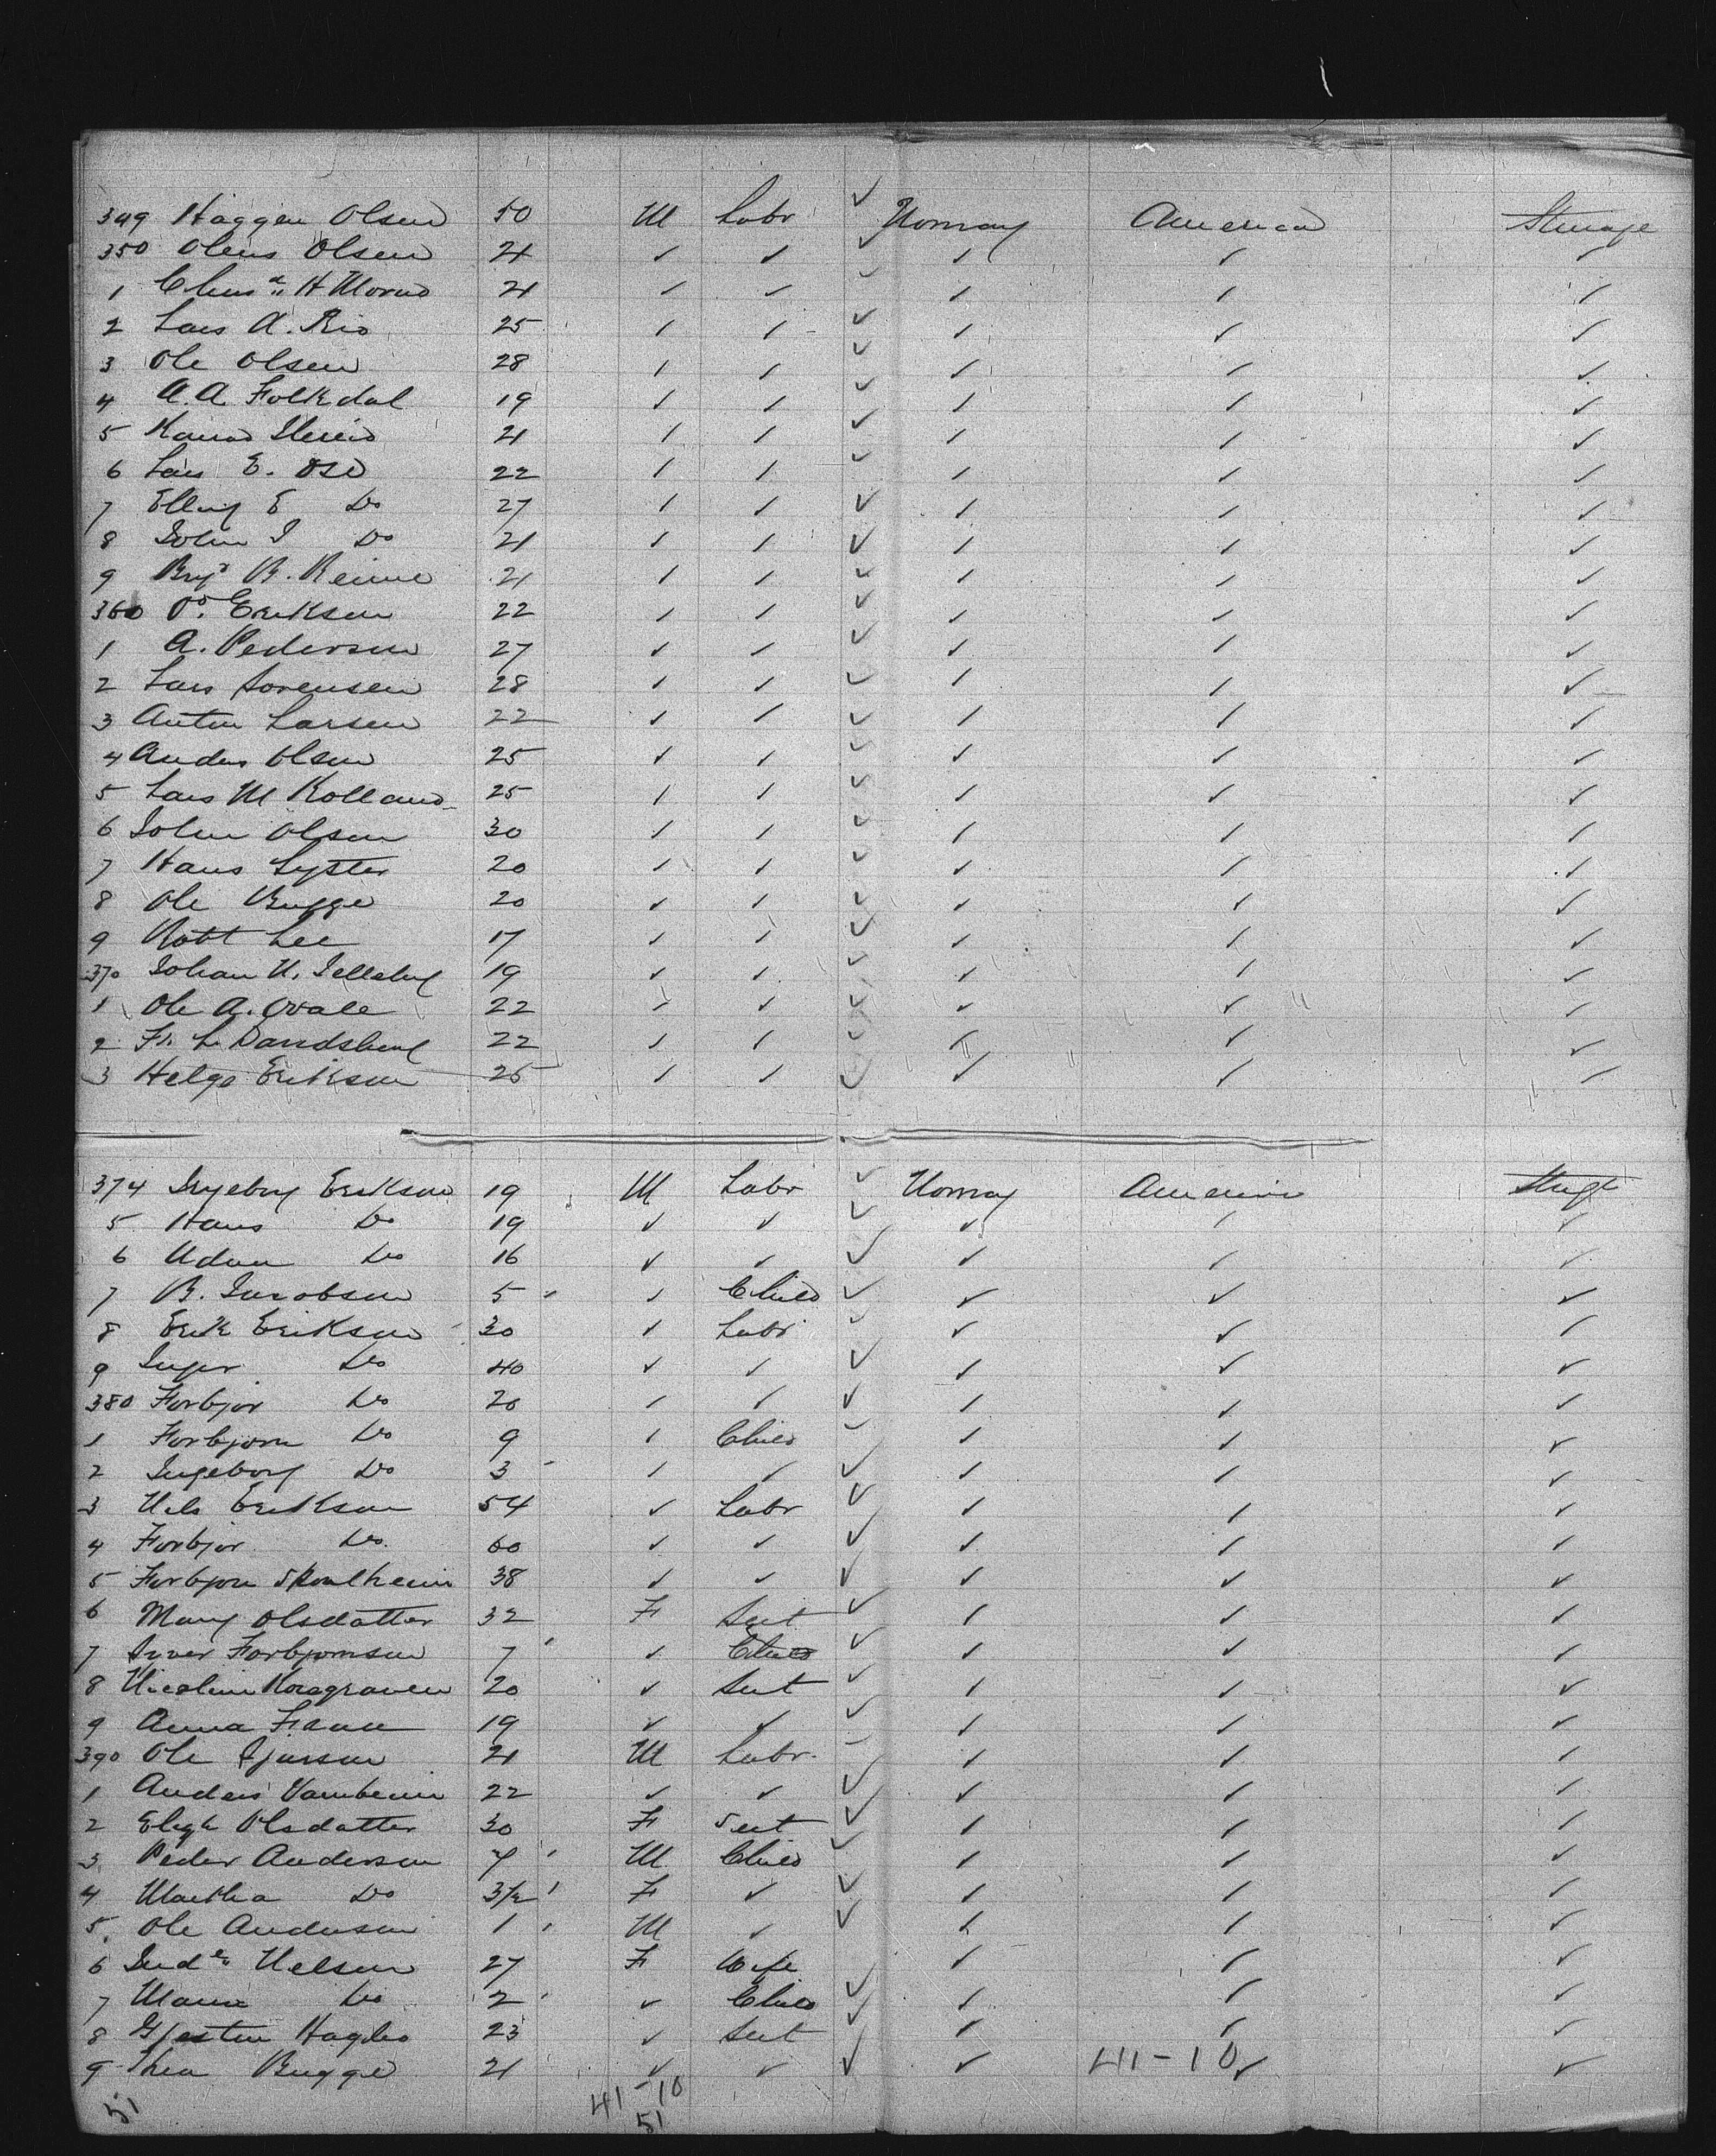 349 Haggen Olsen 50 M Labr ✓ Norway America Steerage
350 Olens Olsen 21 ✓ ✓ ✓ ✓ ✓ ✓
1 H 21 ✓ ✓ ✓ ✓ ✓ ✓
2 Lars A. Rio 25 ✓ ✓ ✓ ✓ ✓ ✓
3 Ole Olsen 28 ✓ ✓ ✓ ✓ ✓ ✓
4 A. A. Folkdal 19 ✓ ✓ ✓ ✓ ✓ ✓
5 21 ✓ ✓ ✓ ✓ ✓ ✓
6 Lars E. Ose 22 ✓ ✓ ✓ ✓ ✓ ✓
7 Elling E Do 27 ✓ ✓ ✓ ✓ ✓ ✓
8 John I Do 21 ✓ ✓ ✓ ✓ ✓ ✓
9 B. Reime 21 ✓ ✓ ✓ ✓ ✓ ✓
360 Eriksen 22 ✓ ✓ ✓ ✓ ✓ ✓
1 A. Pedersen 27 ✓ ✓ ✓ ✓ ✓ ✓
2 Lars Sorensen 28 ✓ ✓ ✓ ✓ ✓ ✓
3 Anton Larsen 22 ✓ ✓ ✓ ✓ ✓ ✓
4 Anders Olsen 25 ✓ ✓ ✓ ✓ ✓ ✓
5 Lars M Rolland 25 ✓ ✓ ✓ ✓ ✓ ✓
6 John Olsen 30 ✓ ✓ ✓ ✓ ✓ ✓
7 Hans Lyster 20 ✓ ✓ ✓ ✓ ✓ ✓
8 Ole Bugge 20 ✓ ✓ ✓ ✓ ✓ ✓
9 Robt Lee 17 ✓ ✓ ✓ ✓ ✓ ✓
370 Johan N. 19 ✓ ✓ ✓ ✓ ✓ ✓
1 Ole A. Qvale 22 ✓ ✓ ✓ ✓ ✓ ✓
2 Fr. L. 22 ✓ ✓ ✓ ✓ ✓ ✓
3 Helge Erikson 25 ✓ ✓ ✓ ✓ ✓ ✓
374 Ingeborg Erikson 19 M Labr ✓ Norway America Steerge
5 Hans Do 19 ✓ ✓ ✓ ✓ ✓ ✓
6 Do 16 ✓ ✓ ✓ ✓ ✓ ✓
7 B. Jacobsen 5 ✓ Child ✓ ✓ ✓ ✓
8 Erik Erikson 30 ✓ Labr ✓ ✓ ✓ ✓
9 Inger Do 40 ✓ ✓ ✓ ✓ ✓ ✓
380 Forbjor Do 20 ✓ ✓ ✓ ✓ ✓ ✓
1 Forbjorn Do 9 ✓ Child ✓ ✓ ✓ ✓
2 Ingeborg Do 3 ✓ ✓ ✓ ✓ ✓ ✓
3 Nels Erikson 54 ✓ Labr ✓ ✓ ✓ ✓
4 Forbjor Do. 60 ✓ ✓ ✓ ✓ ✓ ✓
5 Forbjon 38 ✓ ✓ ✓ ✓ ✓ ✓
6 Mary Olsdatter 32 F Sert ✓ ✓ ✓ ✓
7 Iver Forbjornsen 7 ✓ Child ✓ ✓ ✓ ✓
8 20 ✓ Sert ✓ ✓ ✓ ✓
9 Anna 19 ✓ ✓ ✓ ✓ ✓ ✓
390 Ole 21 M Labr. ✓ ✓ ✓
1 Anders 22 ✓ ✓ ✓ ✓ ✓ ✓
2 Olsdatter 30 F Sert ✓ ✓ ✓ ✓
3 Peder Anderson 7 M Child ✓ ✓ ✓ ✓
4 Martha Do 3/12 F ✓ ✓ ✓ ✓ ✓
5 Ole Anderson 1 M ✓ ✓ ✓ ✓ ✓
6 Nelsen 27 F Wife ✓ ✓ ✓
7 Maria Do 2 ✓ Child ✓ ✓ ✓ ✓
8 23 ✓ Sert ✓ ✓ ✓ ✓
9 Thea Bugge 21 ✓ ✓ ✓ ✓ 41-10 ✓ ✓
51 41-10
51